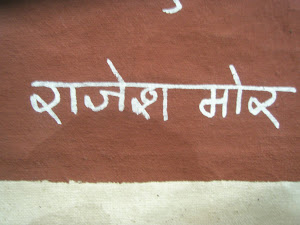 राजेश मोर